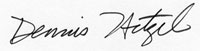 Dennis Hetzel